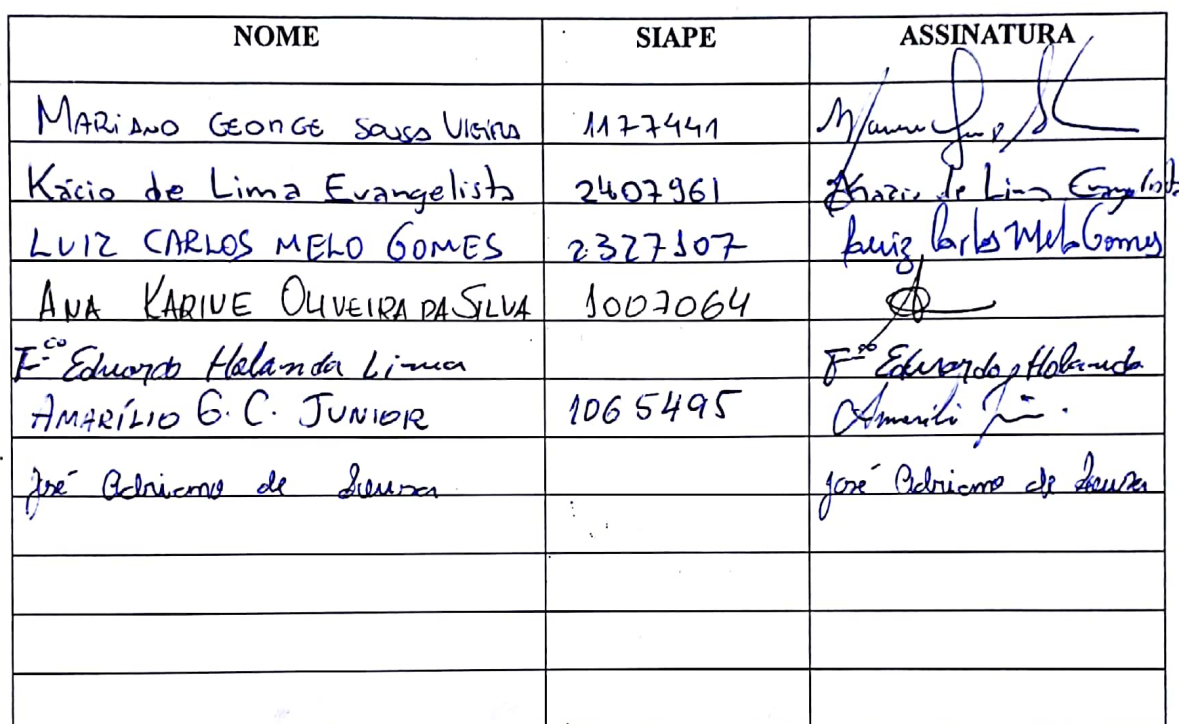 NOME SIAPE ASSINATURA
MARIANO GEORGE SOUSA VIEIRA 1177441
Kácio de Lima Evangelista 2407961 de Lima Evangelista
LUIZ CARLOS MELO GOMES 2327107 Luiz Carlos Melo Gomes
ANA KARINE OLIVEIRA DA SILVA 1007064
Fco Eduardo Holanda Lima Fco Eduardo Holanda
AMARÍLIO G. C. JUNIOR 1065495
José Adriano de Sousa José Adriano de Sousa